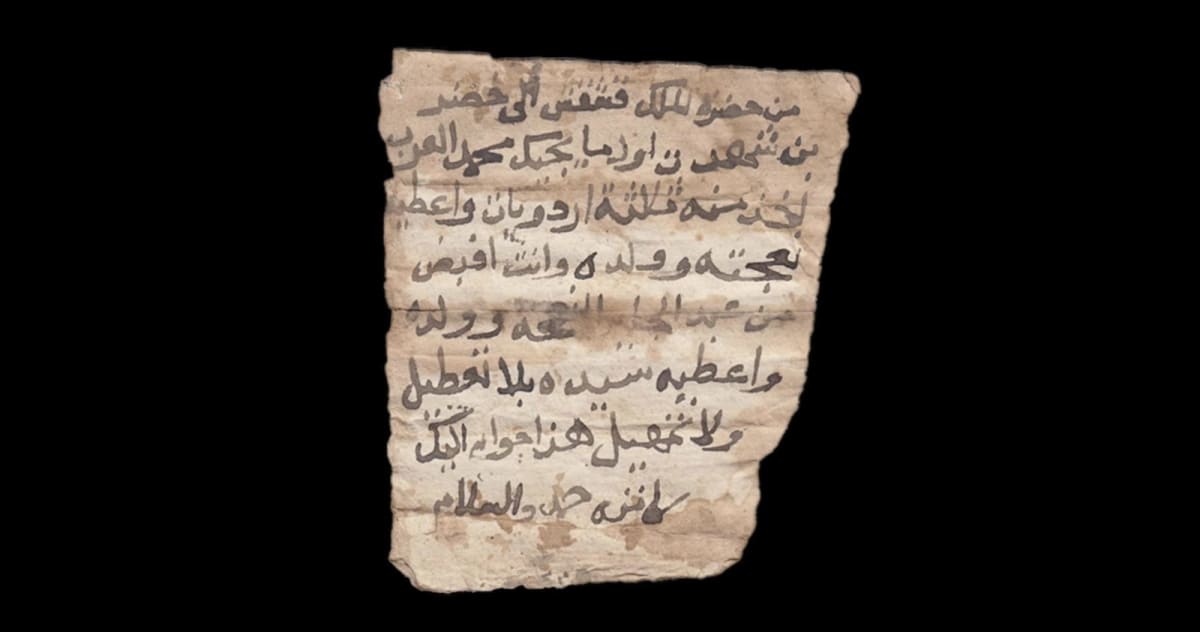 من حضره الملك قشقش الى خضر
بن شهدت اول ما يجيك محمد العرب
تاخذ منه ثلثة اردويات واعطيه
نعجته وولده وانت اقبض
من النعجه وولده
واعطيه سيده بلا تعطيل
ولا تمهيل هذا جوابه اليك
كاتبه حمد والسلام